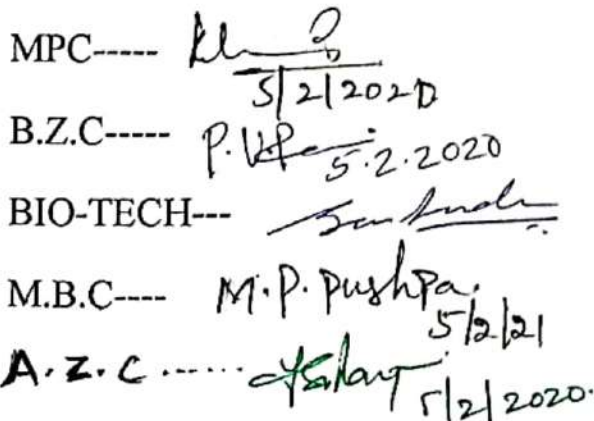 MPC-----
5/2/2020
B.Z.C----- P.V.P
5.2.2020
BIO-TECH---
M.B.C---- M.P. Pushpa.
5/2/21
A.Z.C ......
5/2/2020.